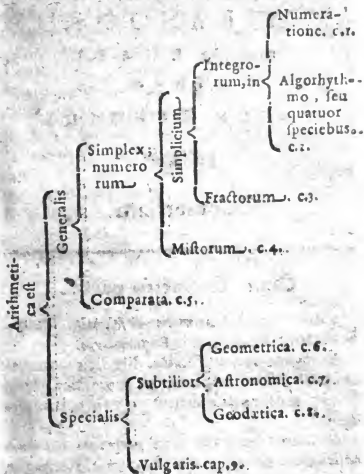 Arithmeti-
ca est
Generalis
Simplex;
numero
rum
Simplicium
Integro-
rum, in
Numera-
tione. c.1.
Algorhyth-
mo, seu
quatuor
speciebus.
c.2.
Fractorum. c.3.
Mistorum. c.4.
Comparata. c.5.
Specialis
Subtilior
Geometrica. c.6.
Astronomica. c.7.
Geodætica. c.8.
Vulgaris. cap. 9.